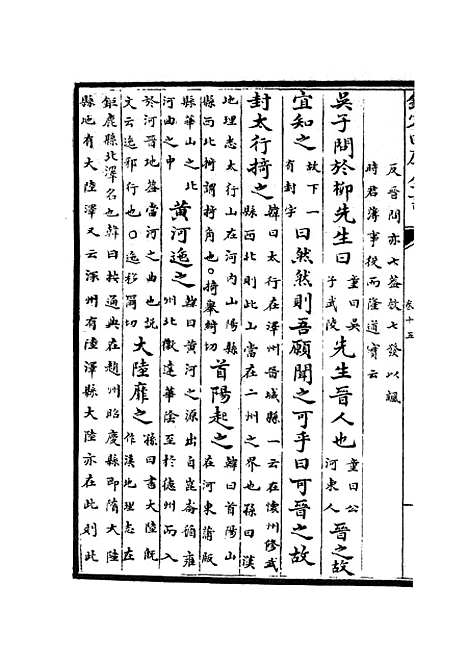 卷十五
反晉問亦七蓋效七發以諷
時君薄事役而隆道實云
吳子問於柳先生曰童曰吳子武陵先生晉人也童曰公河東人晉之故
宜知之故下一有封字曰然然則吾願聞之可乎曰可晉之故
封太行掎之韓曰太行在澤州晉城縣一云在懷州修武縣西北則此山當在二州之界也孫曰漢
地理志太行山在河內山陽縣縣西北掎謂掎角也○掎舉綺切首陽起之韓曰首陽山在河東蒲坂
縣華山之北河曲之中黃河迤之韓曰黃河之源出自崑崙循雍州北徼達華陰至於德州而入
於河晉地蓋當河之曲也說文云迤邪行也○迤移爾切大陸靡之孫曰書大陸既作漢地理志在
鉅鹿縣北澤名也韓曰按通典在趙州昭慶縣即隋大陸縣地有大陸澤又云深州有陸澤縣大陸亦在此則此